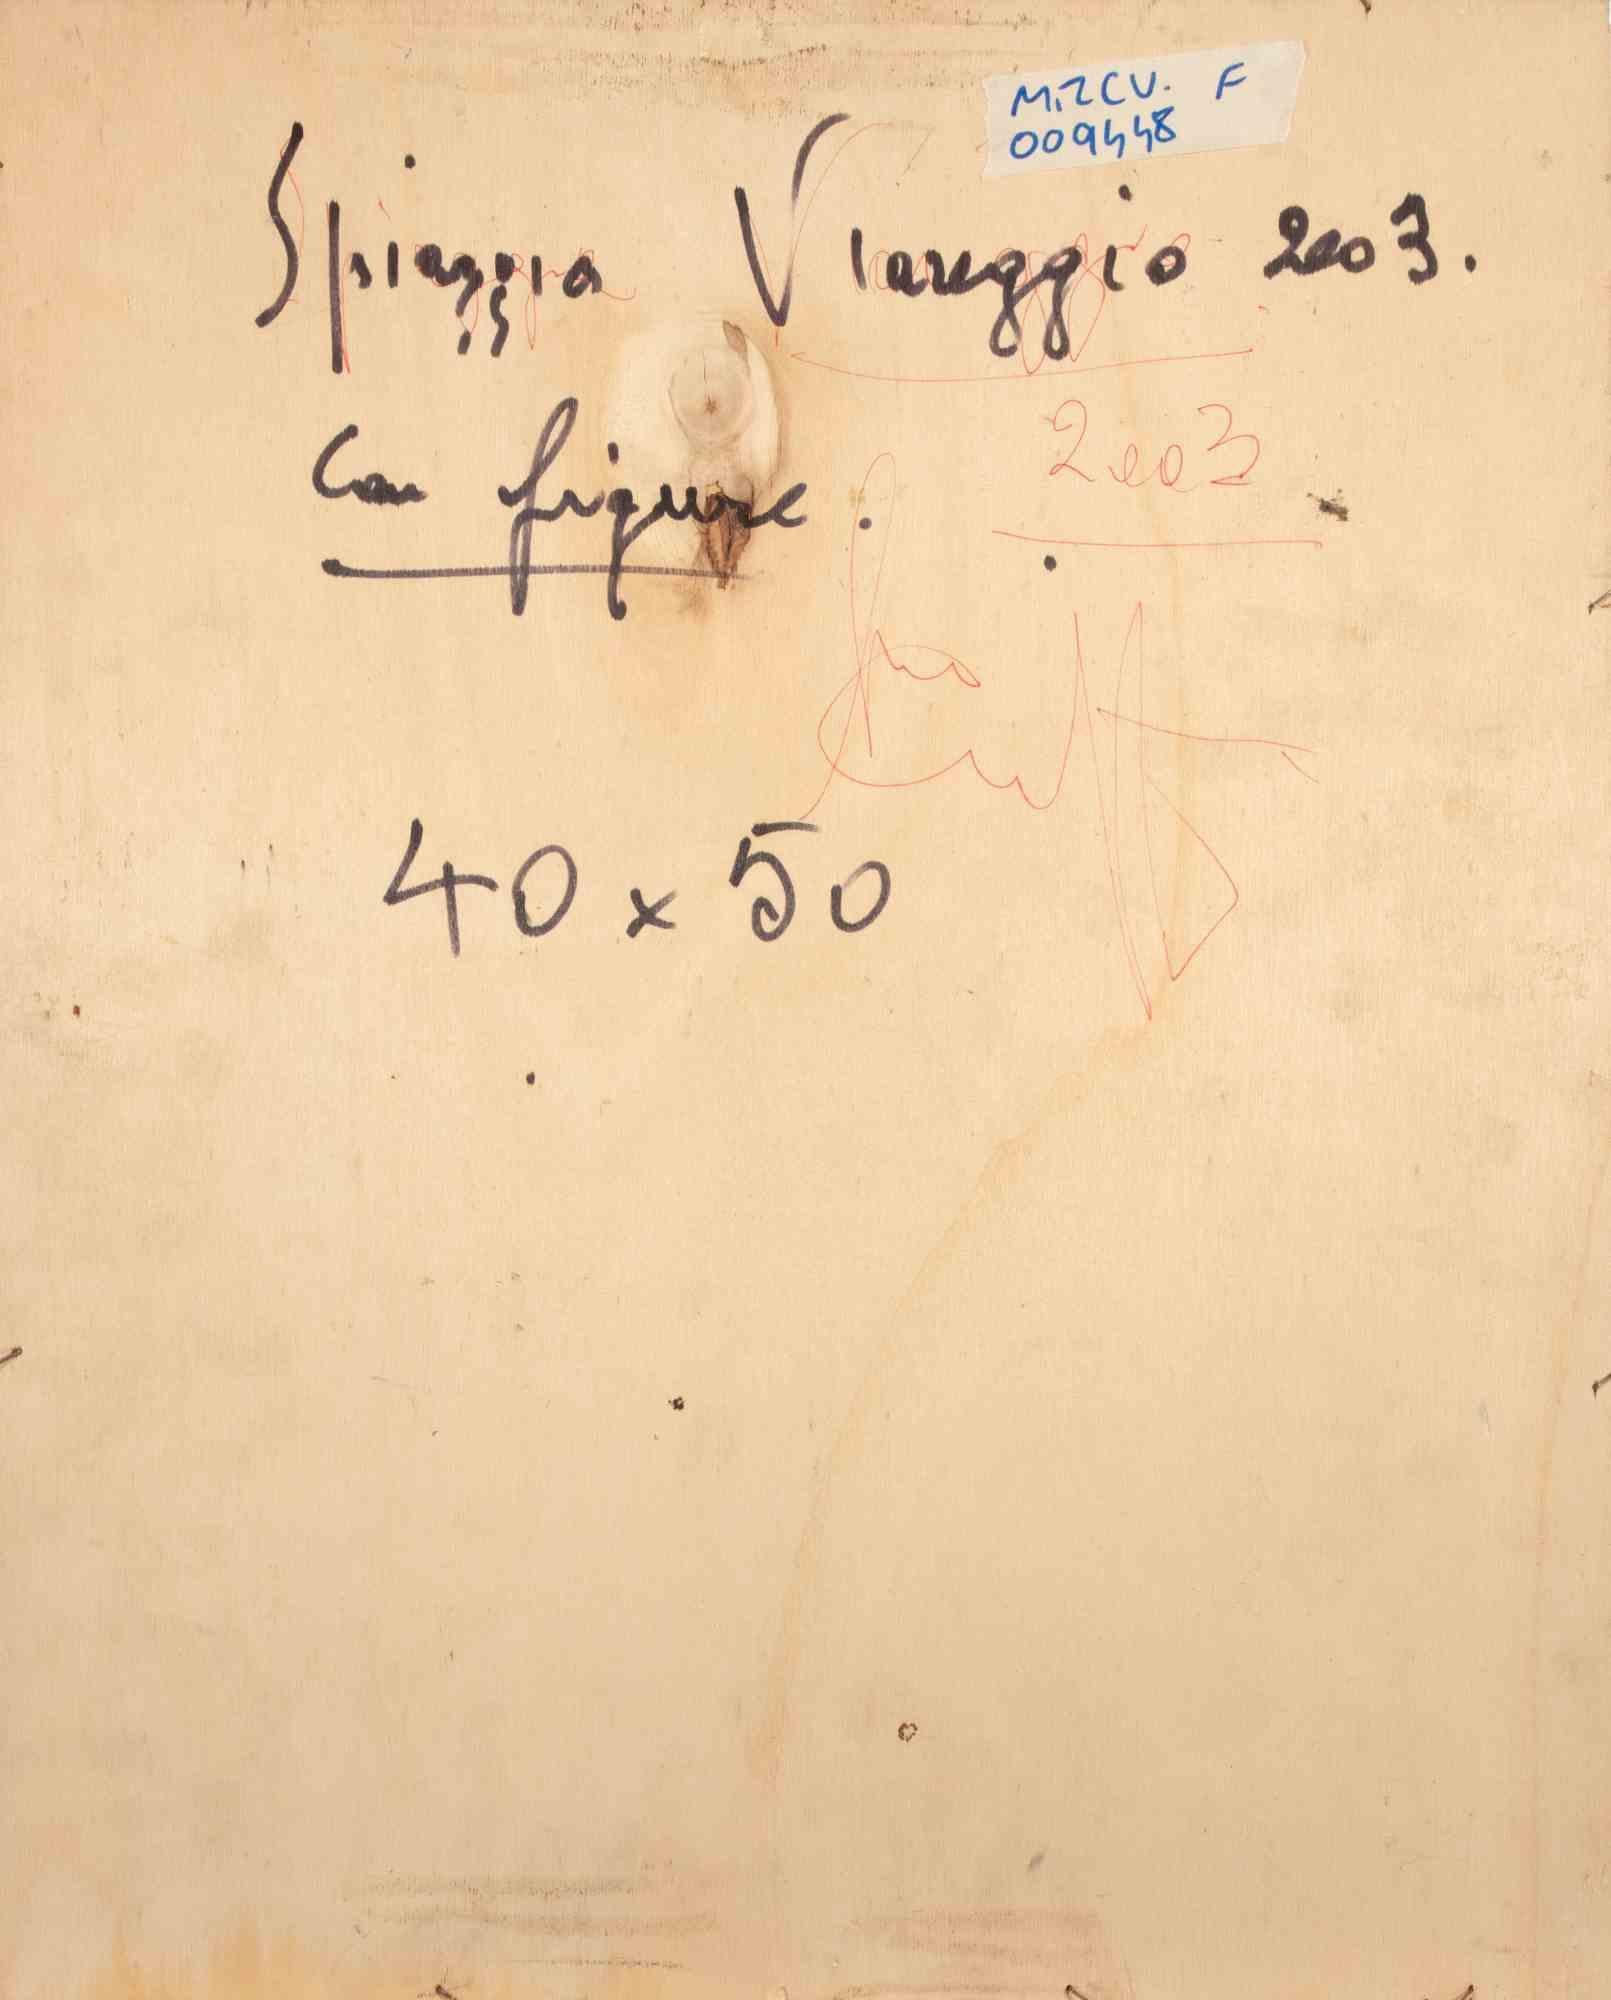 M.ZCV. F
009448
Spiaggia Viareggio 2003.
Con figure.
2003
40 x 50